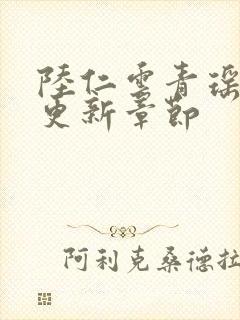 陸仁雲青瑶
更新章節
阿利克桑德拉